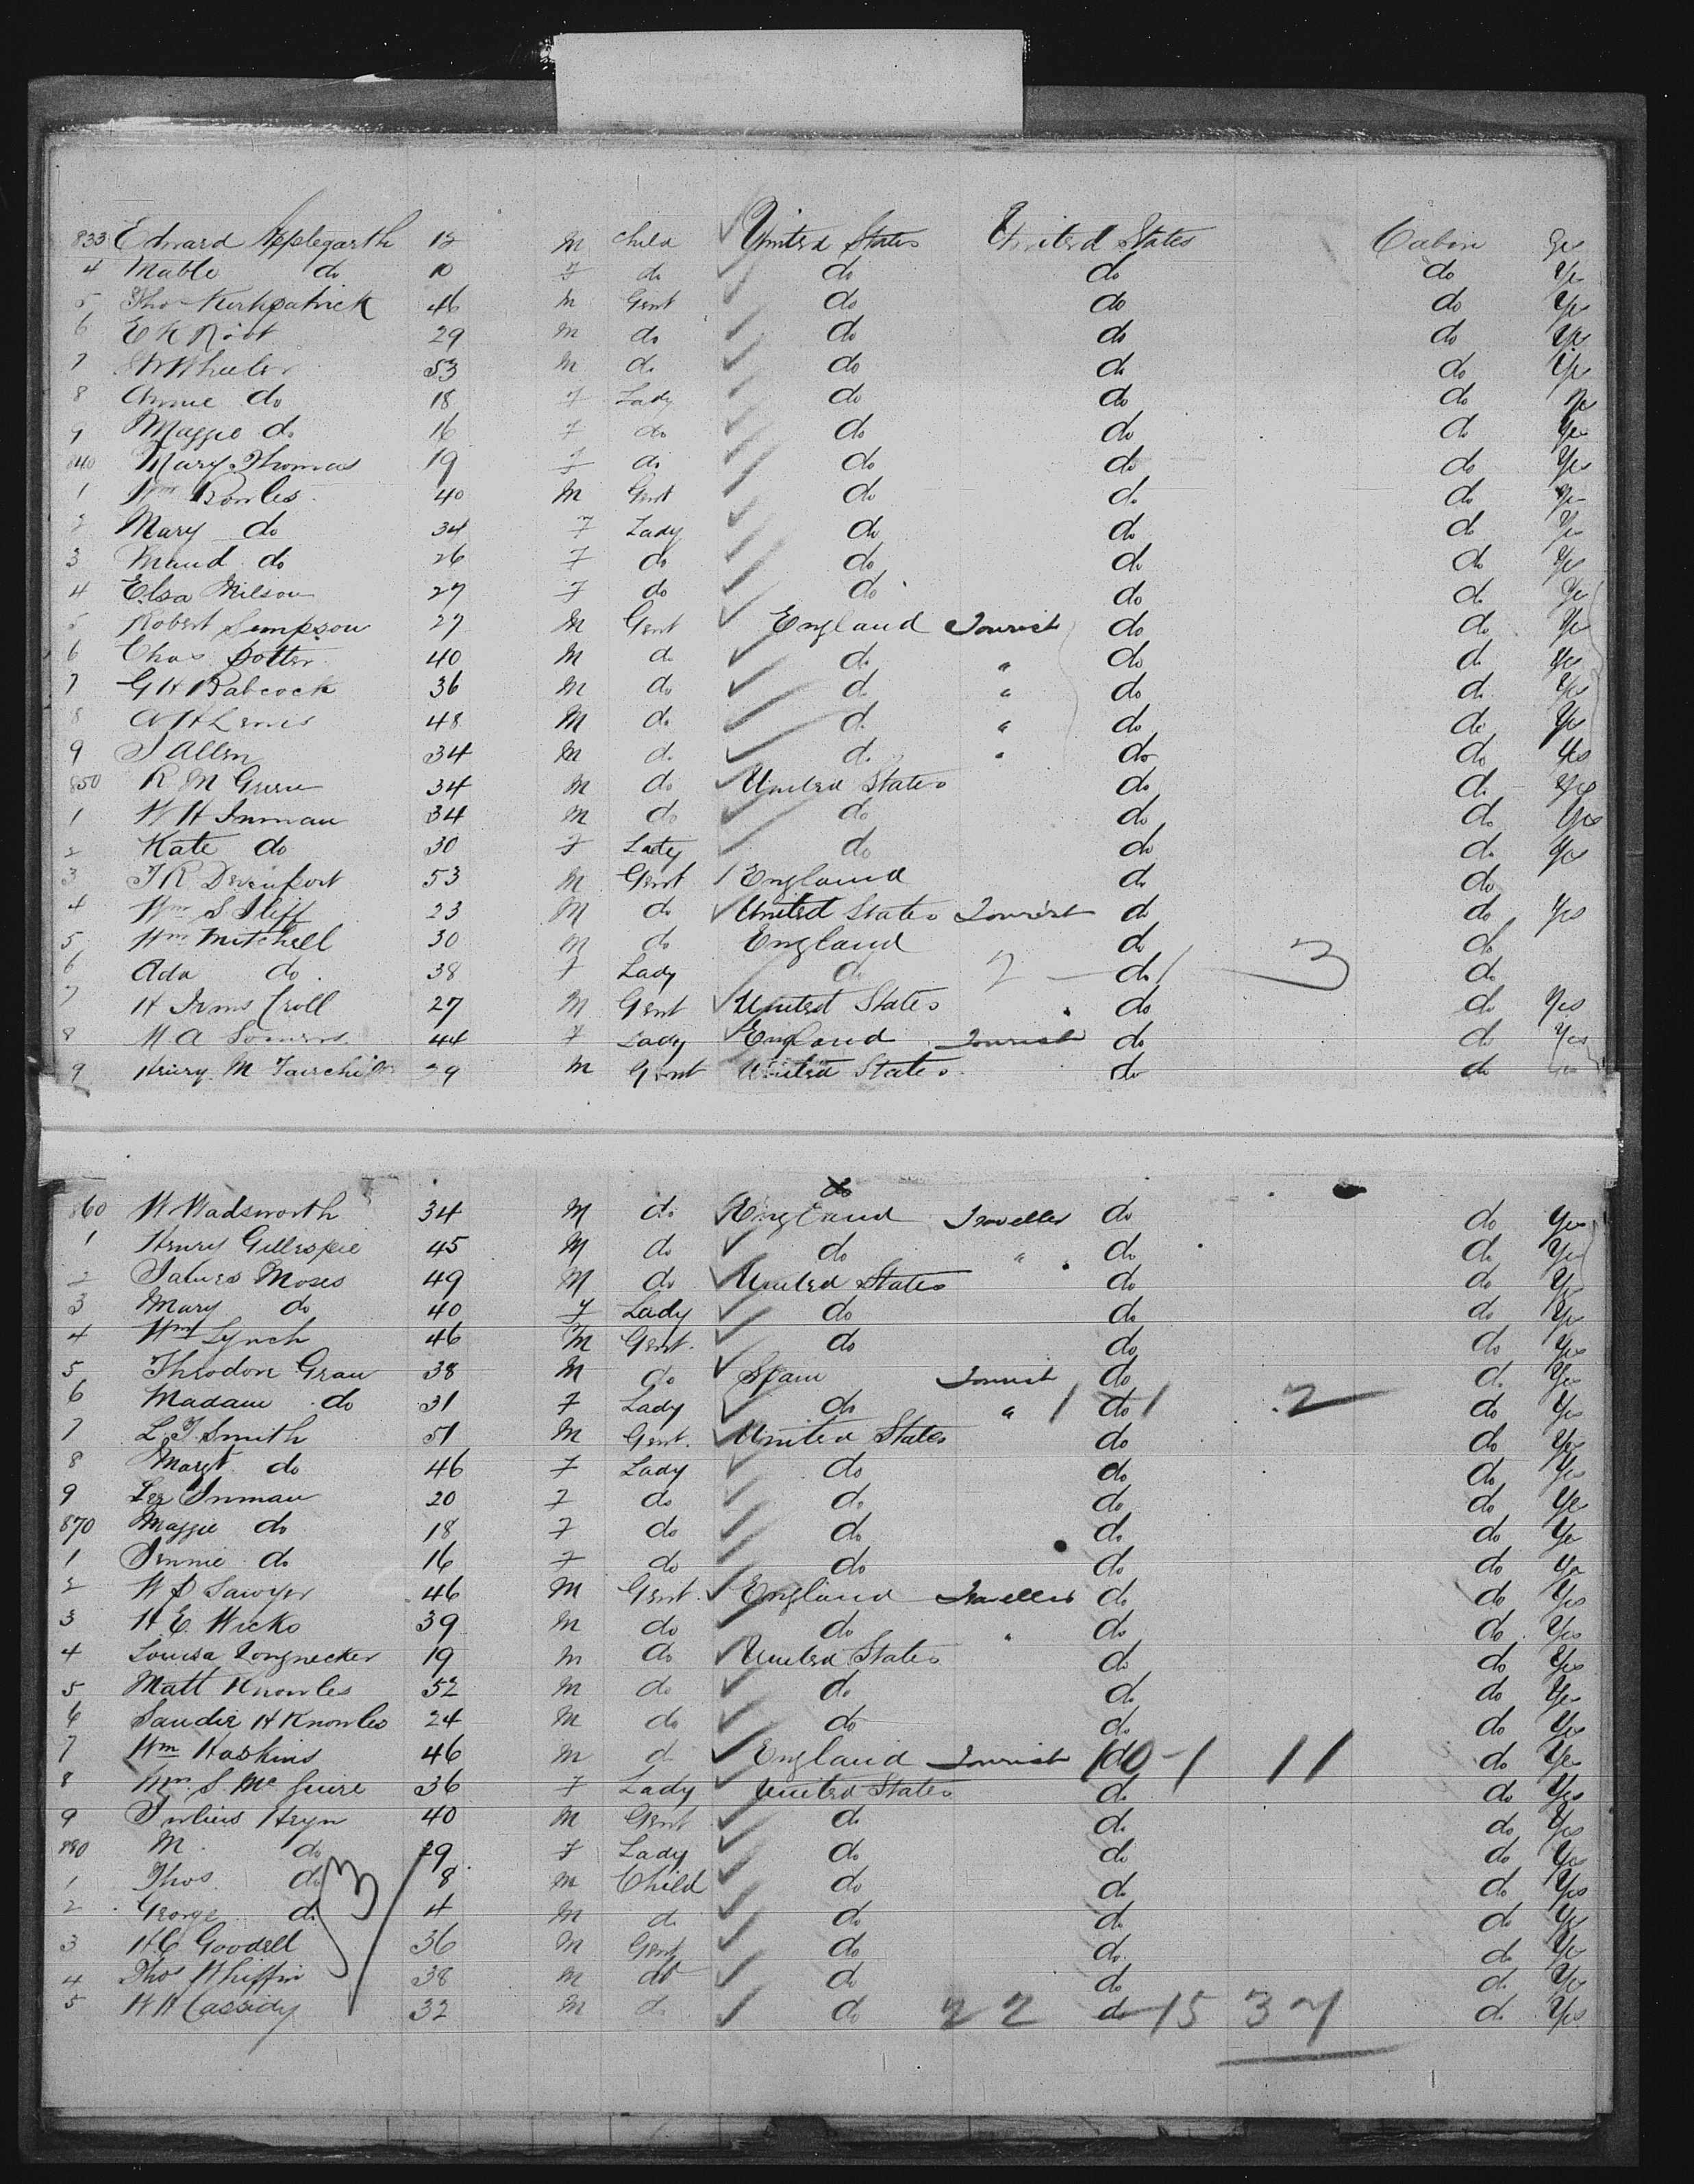 833 Edward Applegarth 12 M Child United States United States Cabin Yes
4 Mable do 10 F do do do do Yes
5 Thos Kirkpatrick 46 M Gent do do do Yes
6 E K 29 M do do do do Yes
7 Wheeler 53 M do do do do Yes
8 Annie do 18 F Lady do do do Yes
9 Maggie do 16 F do do do do Yes
840 Mary Thomas 19 F do do do do Yes
1 Wm Bowles 40 M Gent do do do Yes
2 Mary do 34 F Lady do do do Yes
3 Maud do 26 F do do do do Yes
4 Elsa Wilson 27 F do do do do Yes
5 Robert Simpson 27 M Gent England Tourist do do Yes
6 Chas Potter 40 M do do " do do Yes
7 G H Babcock 36 M do do " do do Yes
8 Lewis 48 M do do " do do Yes
9 J Allen 34 M do do " do do Yes
850 R M Green 34 M do United States do do Yes
1 W H Inman 34 M do do do do Yes
2 Kate do 30 F Lady do do do Yes
3 T R Devenport 53 M Gent England do do
4 Wm S Iliff 23 M do United States Tourist do do Yes
5 Wm Mitchell 30 M do England do do
6 Ada do 38 F Lady do 2 do 3 do
7 H Irms Croll 27 M Gent United States do do Yes
8 M A Somers 44 F Lady England Tourist do do Yes
9 Henry M Fairchild 29 M Gent United States do do Yes
do
860 W Wadsworth 34 M do England Traveller do do Yes
1 Henry Gillespie 45 M do do " do do Yes
2 James Moses 49 M do United States do do Yes
3 Mary do 40 F Lady do do do Yes
4 Wm Lynch 46 M Gent do do do Yes
5 Theodore Grau 38 M do Spain Tourist do do Yes
6 Madam do 31 F Lady do " 1 do 1 2 do Yes
7 L T Smith 51 M Gent United States do do Yes
8 Margt do 46 F Lady do do do Yes
9 Inman 20 F do do do do Yes
870 Maggie do 18 F do do do do Yes
1 Jennie do 16 F do do do do Yes
2 W D Sawyer 46 M Gent England Traveller do do Yes
3 H E Wicks 39 M do do " do do Yes
4 Louisa Longnecker 19 M do United States do do Yes
5 Matt Knowles 52 M do do do do Yes
6 Sandie H Knowles 24 M do do do do Yes
7 Wm Haskins 46 M do England Tourist do 10 - 1 11 do Yes
8 Mrs S. McGuire 36 F Lady United States do do Yes
9 Julius Heyn 40 M Gent do do do Yes
880 M do 29 F Lady do do do Yes
1 Thos do 8 M Child do do do Yes
2 George do 4 M do do do do Yes
3 H C Goodell 36 M Gent do do do Yes
4 Thos Whiffin 38 M do do do do Yes
5 W H Cassidy 32 M do do 22 do 15 37 do Yes